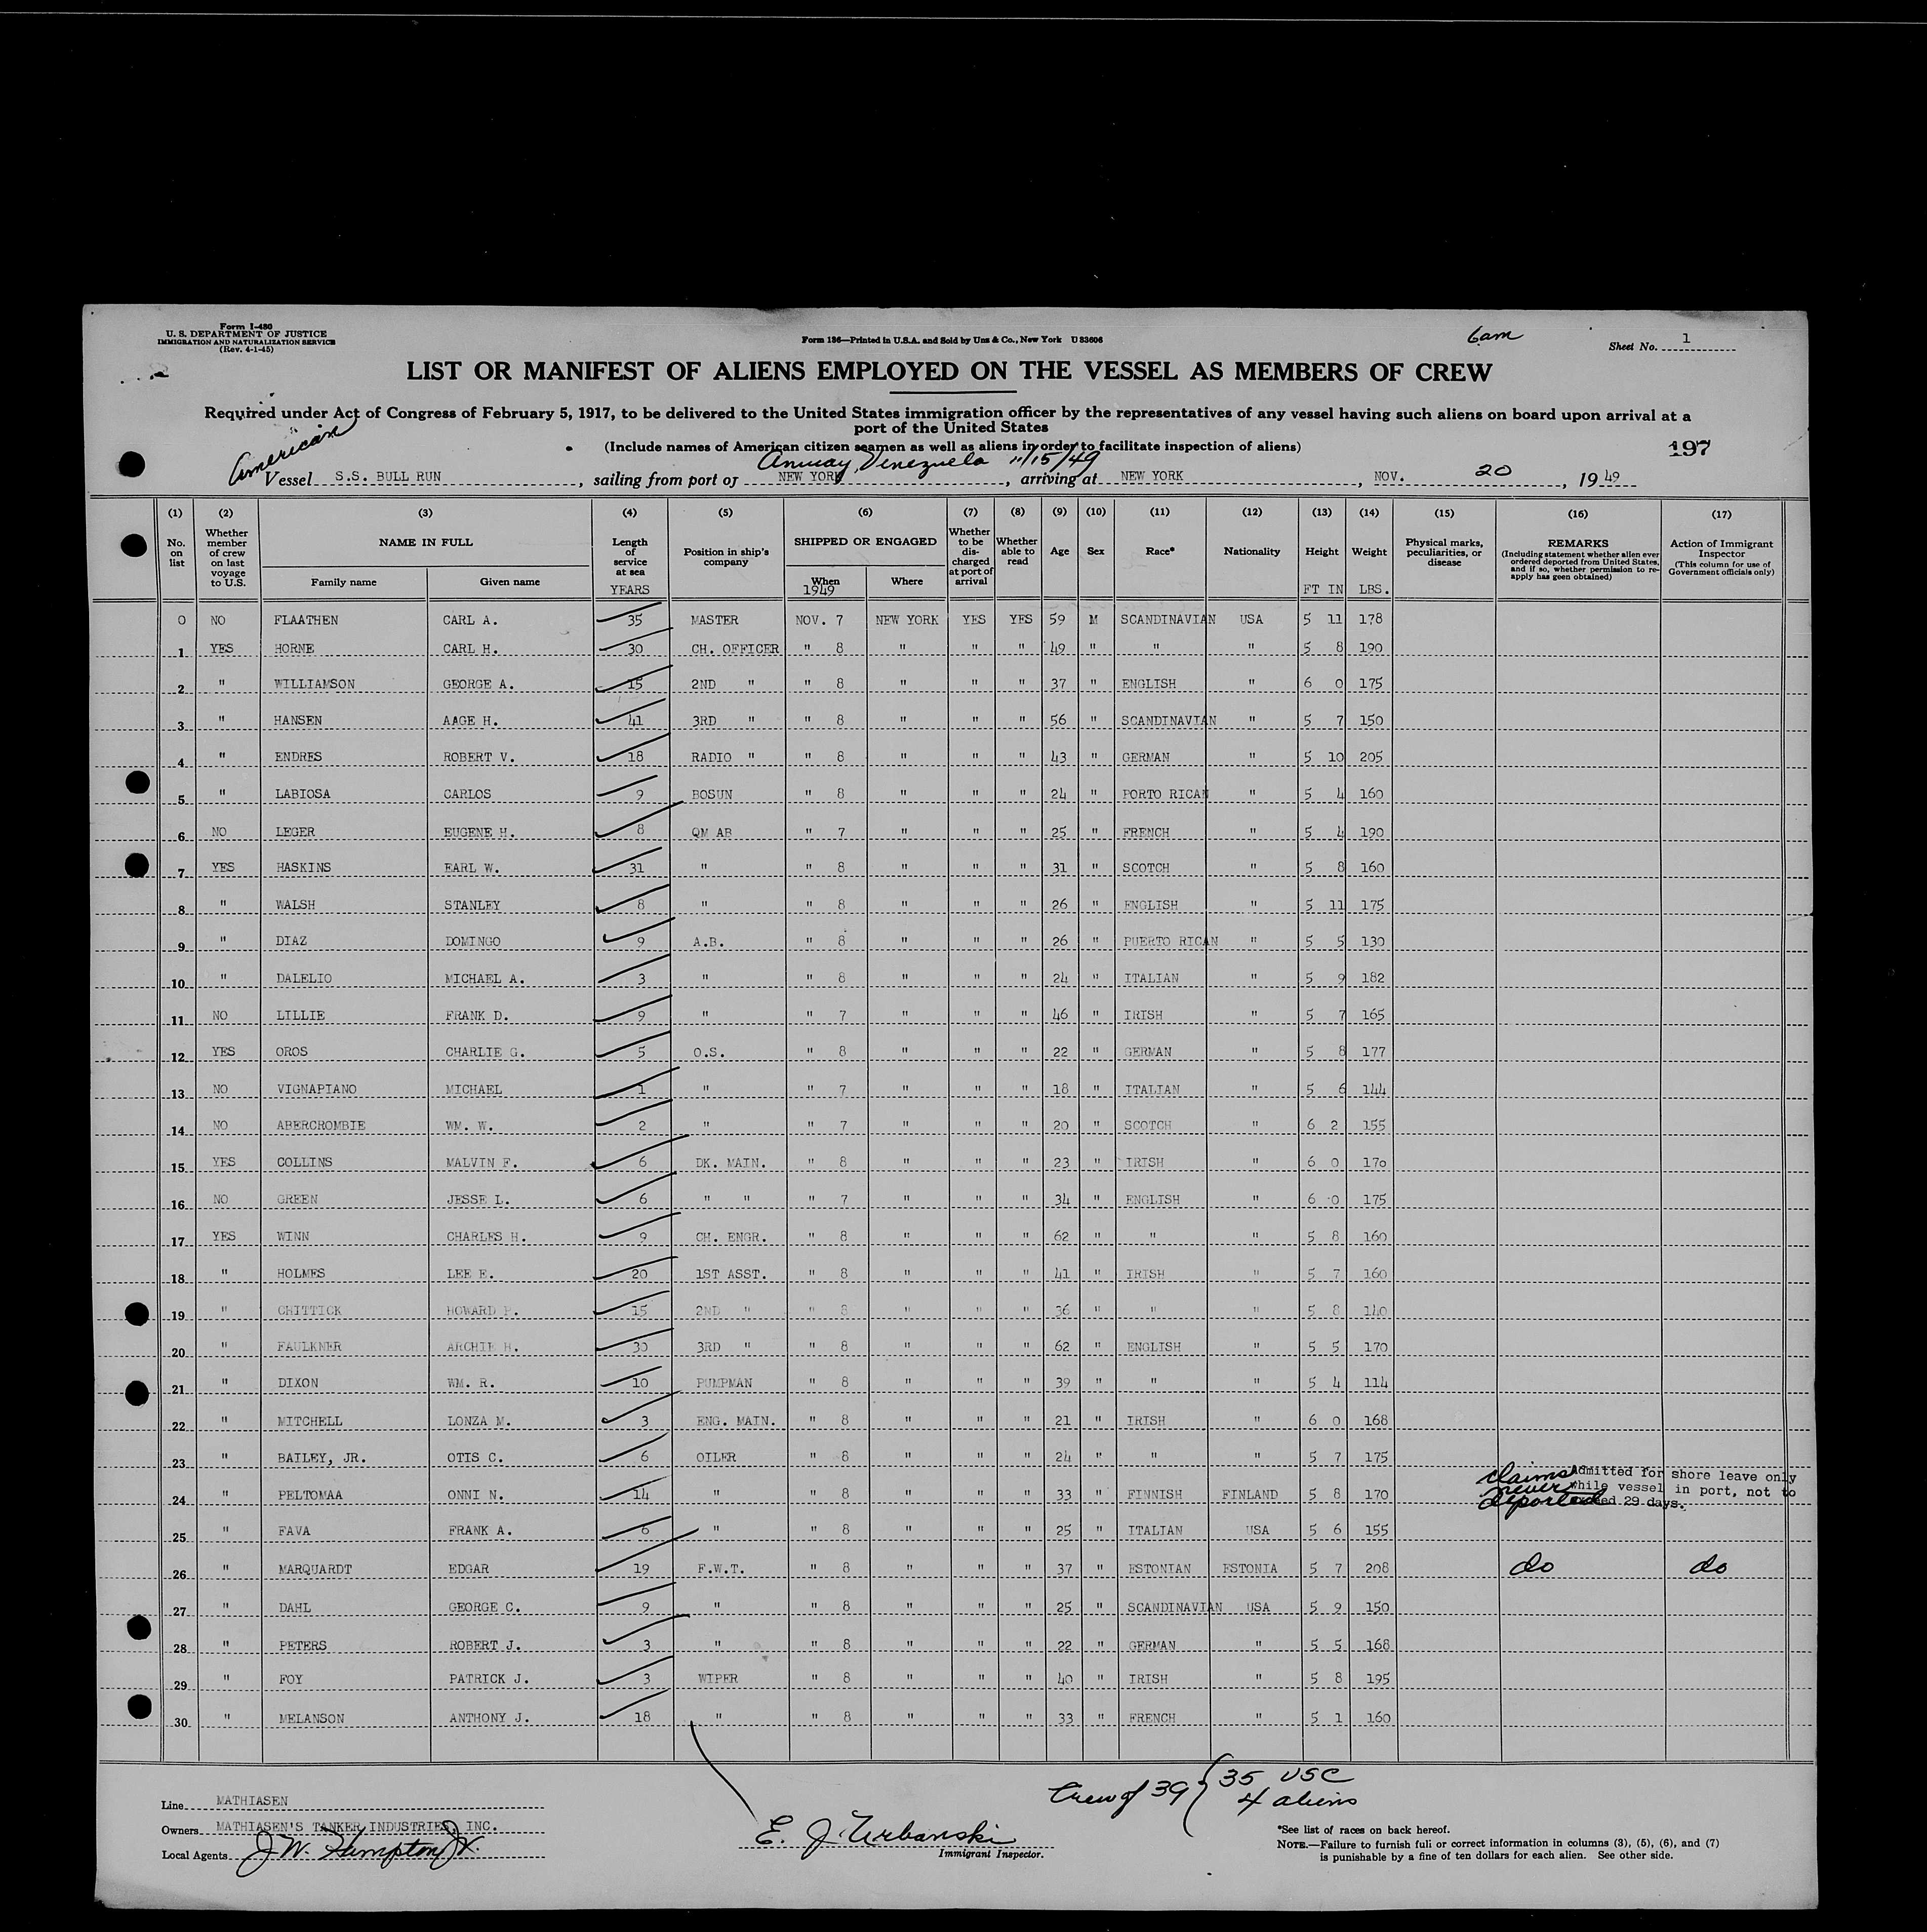 Form I-480
U. S. DEPARTMENT OF JUSTICE
IMMIGRATION AND NATURALIZATION SERVICE
(Rev. 4-1-45)
Form 186—Printed in U.S.A. and Sold by Unz & Co., New York U 83606
6am
Sheet No. 1
LIST OR MANIFEST OF ALIENS EMPLOYED ON THE VESSEL AS MEMBERS OF CREW
Required under Act of Congress of February 5, 1917, to be delivered to the United States immigration officer by the representatives of any vessel having such aliens on board upon arrival at a
port of the United States
(Include names of American citizen seamen as well as aliens in order to facilitate inspection of aliens)
197
American
Amuay, Venezuela 11/15/49
Vessel S.S. BULL RUN, sailing from port of NEW YORK, arriving at NEW YORK, NOV. 20, 1949
(1) (2) (3) (4) (5) (6) (7) (8) (9) (10) (11) (12) (13) (14) (15) (16) (17)
No. on list Whether member of crew on last voyage to U.S. NAME IN FULL Family name Given name Length of service at sea YEARS Position in ship's company SHIPPED OR ENGAGED When 1949 Where Whether to be discharged at port of arrival Whether able to read Age Sex Race* Nationality Height FT IN Weight LBS. Physical marks, peculiarities, or disease REMARKS (Including statement whether alien ever ordered deported from United States, and if so, whether permission to re-apply has geen obtained) Action of Immigrant Inspector (This column for use of Government officials only)
0 NO FLAATHEN CARL A. 35 MASTER NOV. 7 NEW YORK YES YES 59 M SCANDINAVIAN USA 5 11 178
1 YES HORNE CARL H. 30 CH. OFFICER " 8 " " " 49 " " " 5 8 190
2 " WILLIAMSON GEORGE A. 15 2ND " " 8 " " " 37 " ENGLISH " 6 0 175
3 " HANSEN AAGE H. 41 3RD " " 8 " " " 56 " SCANDINAVIAN " 5 7 150
4 " ENDRES ROBERT V. 18 RADIO " " 8 " " " 43 " GERMAN " 5 10 205
5 " LABIOSA CARLOS 9 BOSUN " 8 " " " 24 " PORTO RICAN " 5 4 160
6 NO LEGER EUGENE H. 8 QM AB " 7 " " " 25 " FRENCH " 5 4 190
7 YES HASKINS EARL W. 31 " " 8 " " " 31 " SCOTCH " 5 8 160
8 " WALSH STANLEY 8 " " 8 " " " 26 " ENGLISH " 5 11 175
9 " DIAZ DOMINGO 9 A.B. " 8 " " " 26 " PUERTO RICAN " 5 5 130
10 " DALELIO MICHAEL A. 3 " " 8 " " " 24 " ITALIAN " 5 9 182
11 NO LILLIE FRANK D. 9 " " 7 " " " 46 " IRISH " 5 7 165
12 YES OROS CHARLIE G. 5 O.S. " 8 " " " 22 " GERMAN " 5 8 177
13 NO VIGNAPIANO MICHAEL 1 " " 7 " " " 18 " ITALIAN " 5 6 144
14 NO ABERCROMBIE WM. W. 2 " " 7 " " " 20 " SCOTCH " 6 2 155
15 YES COLLINS MALVIN F. 6 DK. MAIN. " 8 " " " 23 " IRISH " 6 0 170
16 NO GREEN JESSE L. 6 " " " 7 " " " 34 " ENGLISH " 6 0 175
17 YES WINN CHARLES H. 9 CH. ENGR. " 8 " " " 62 " " " 5 8 160
18 " HOLMES LEE E. 20 1ST ASST. " 8 " " " 41 " IRISH " 5 7 160
19 " CHITTICK HOWARD P. 15 2ND " " 8 " " " 36 " " " 5 8 140
20 " FAULKNER ARCHIE H. 30 3RD " " 8 " " " 62 " ENGLISH " 5 5 170
21 " DIXON WM. R. 10 PUMPMAN " 8 " " " 39 " " " 5 4 114
22 " MITCHELL LONZA M. 3 ENG. MAIN. " 8 " " " 21 " IRISH " 6 0 168
23 " BAILEY, JR. OTIS C. 6 OILER " 8 " " " 24 " " " 5 7 175
24 " PELTOMAA ONNI N. 14 " " 8 " " " 33 " FINNISH FINLAND 5 8 170 claims never deported Admitted for shore leave only while vessel in port, not to exceed 29 days.
25 " FAVA FRANK A. 6 " " 8 " " " 25 " ITALIAN USA 5 6 155
26 " MARQUARDT EDGAR 19 F.W.T. " 8 " " " 37 " ESTONIAN ESTONIA 5 7 208 do do
27 " DAHL GEORGE C. 9 " " 8 " " " 25 " SCANDINAVIAN USA 5 9 150
28 " PETERS ROBERT J. 3 " " 8 " " " 22 " GERMAN " 5 5 168
29 " FOY PATRICK J. 3 WIPER " 8 " " " 40 " IRISH " 5 8 195
30 " MELANSON ANTHONY J. 18 " " 8 " " " 33 " FRENCH " 5 1 160
Crew of 39 { 35 USC
4 aliens
Line MATHIASEN
Owners MATHIASEN'S TANKER INDUSTRIES, INC.
Local Agents J W. Hampton Jr.
E. J. Urbanski
Immigrant Inspector.
*See list of races on back hereof.
NOTE.—Failure to furnish full or correct information in columns (3), (5), (6), and (7)
is punishable by a fine of ten dollars for each alien. See other side.